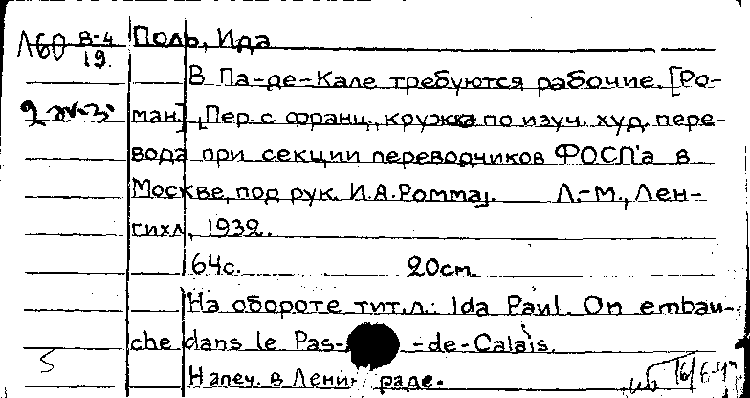 Л60 В-4 Поль, Ида
19.
В Па-де-Кале требуются рабочие. [Ро-
ман]. Пер. с франц., кружка по изуч. худ. пере-
вода при секции переводчиков ФОСП'а в
Москве, под рук. И.А.Роммај. Л.-М., Лен-
гихл, 1932.
64с. 20см
На обороте тит.л.: Ida Paul. On embau-
che dans le Pas- -de-Calais.
5
Напеч. в Лени раде.